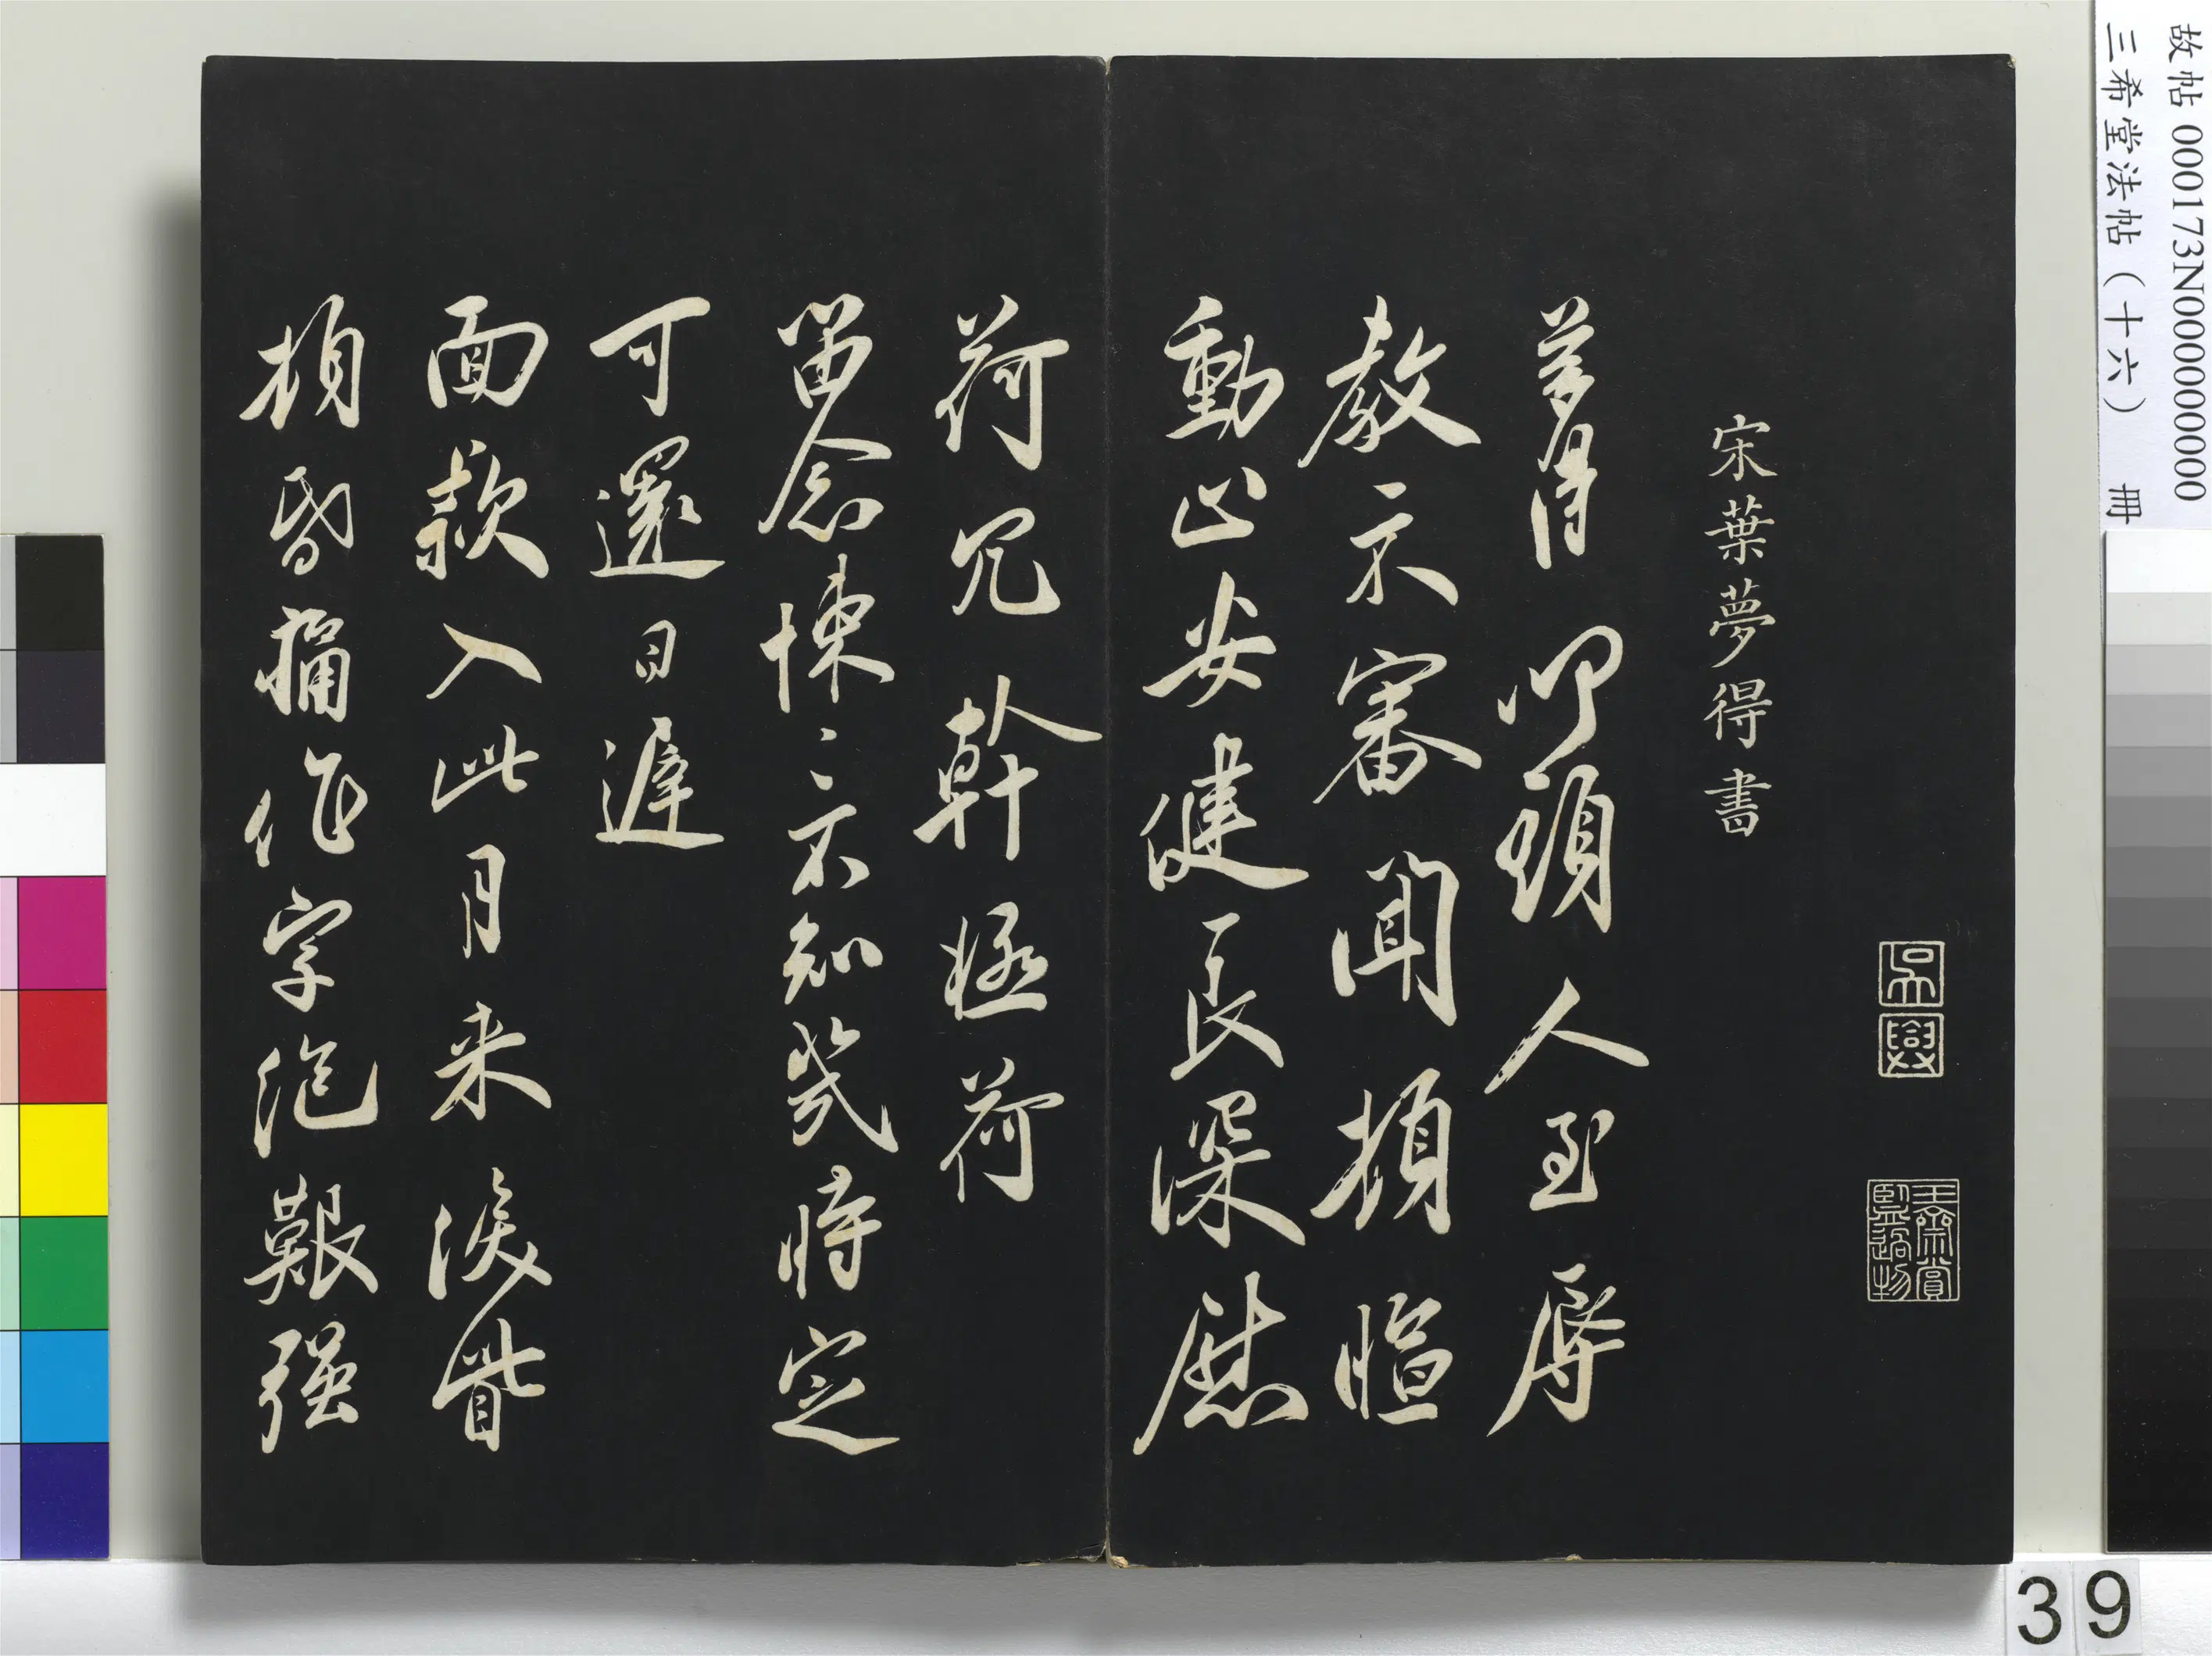 故帖 000173N000000000
三希堂法帖（十六） 冊
宋葉夢得書
夢得叩頭人至辱
教示審聞頓暄
動止安健良深慰
荷冗幹極荷
留念悚〻不知幾時定
可還日日遲
面款入此月来淚眥
頓昏痛作字絕艱强
吳興
39